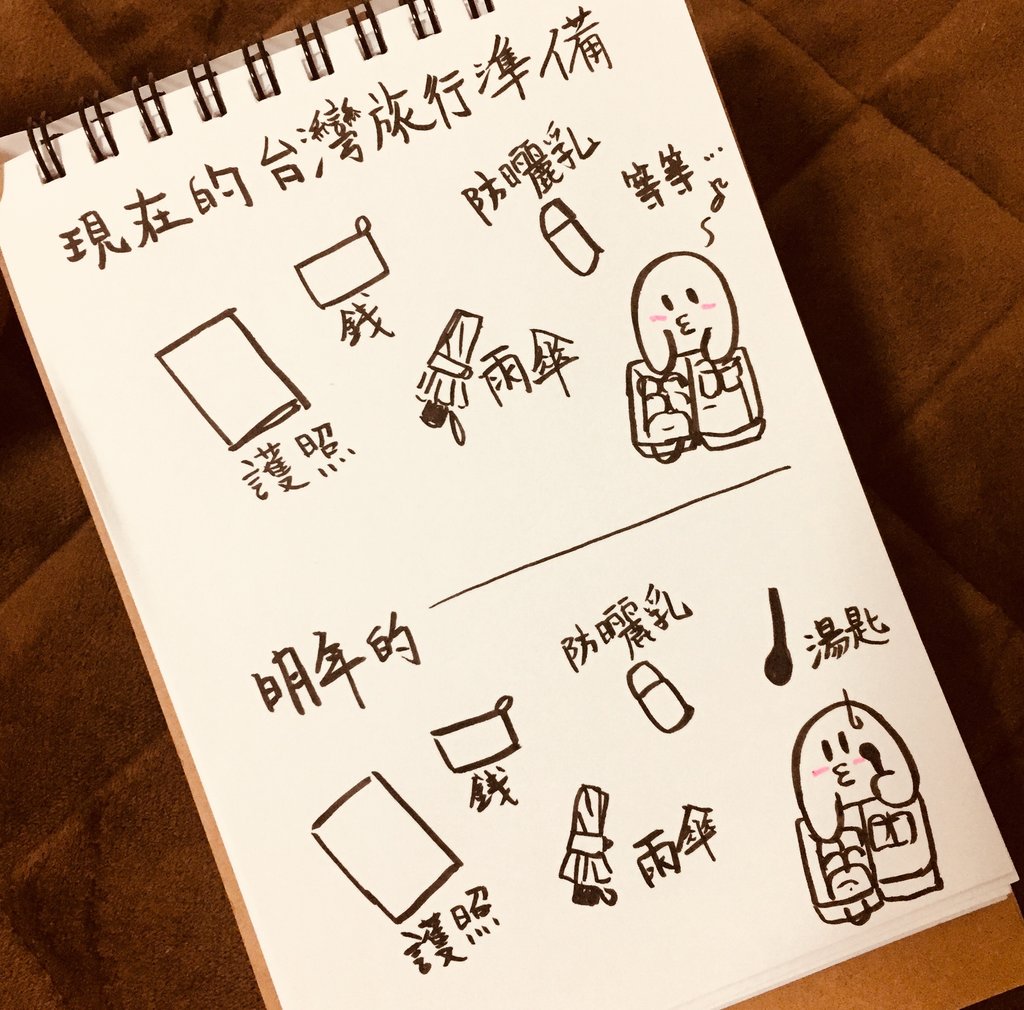 現在的台灣旅行準備
防曬乳
等等…
錢
雨傘
護照
明年的
防曬乳
湯匙
錢
雨傘
護照